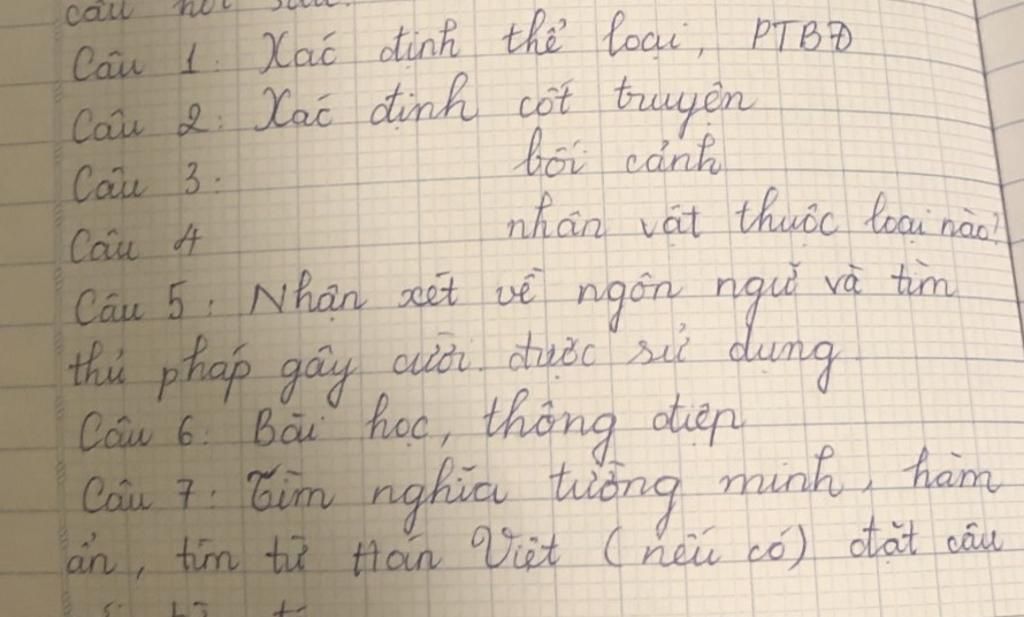 câu hỏi sau.
Câu 1. Xác định thể loại, PTBĐ
Câu 2: Xác định cốt truyện
Câu 3: bối cảnh
Câu 4 nhân vật thuộc loại nào?
Câu 5: Nhận xét về ngôn ngữ và tìm
thủ pháp gây cười. được sử dụng
Câu 6: Bài học, thông điệp
Câu 7: Tìm nghĩa tường minh, hàm
ẩn, tìm từ Hán Việt (nếu có) đặt câu